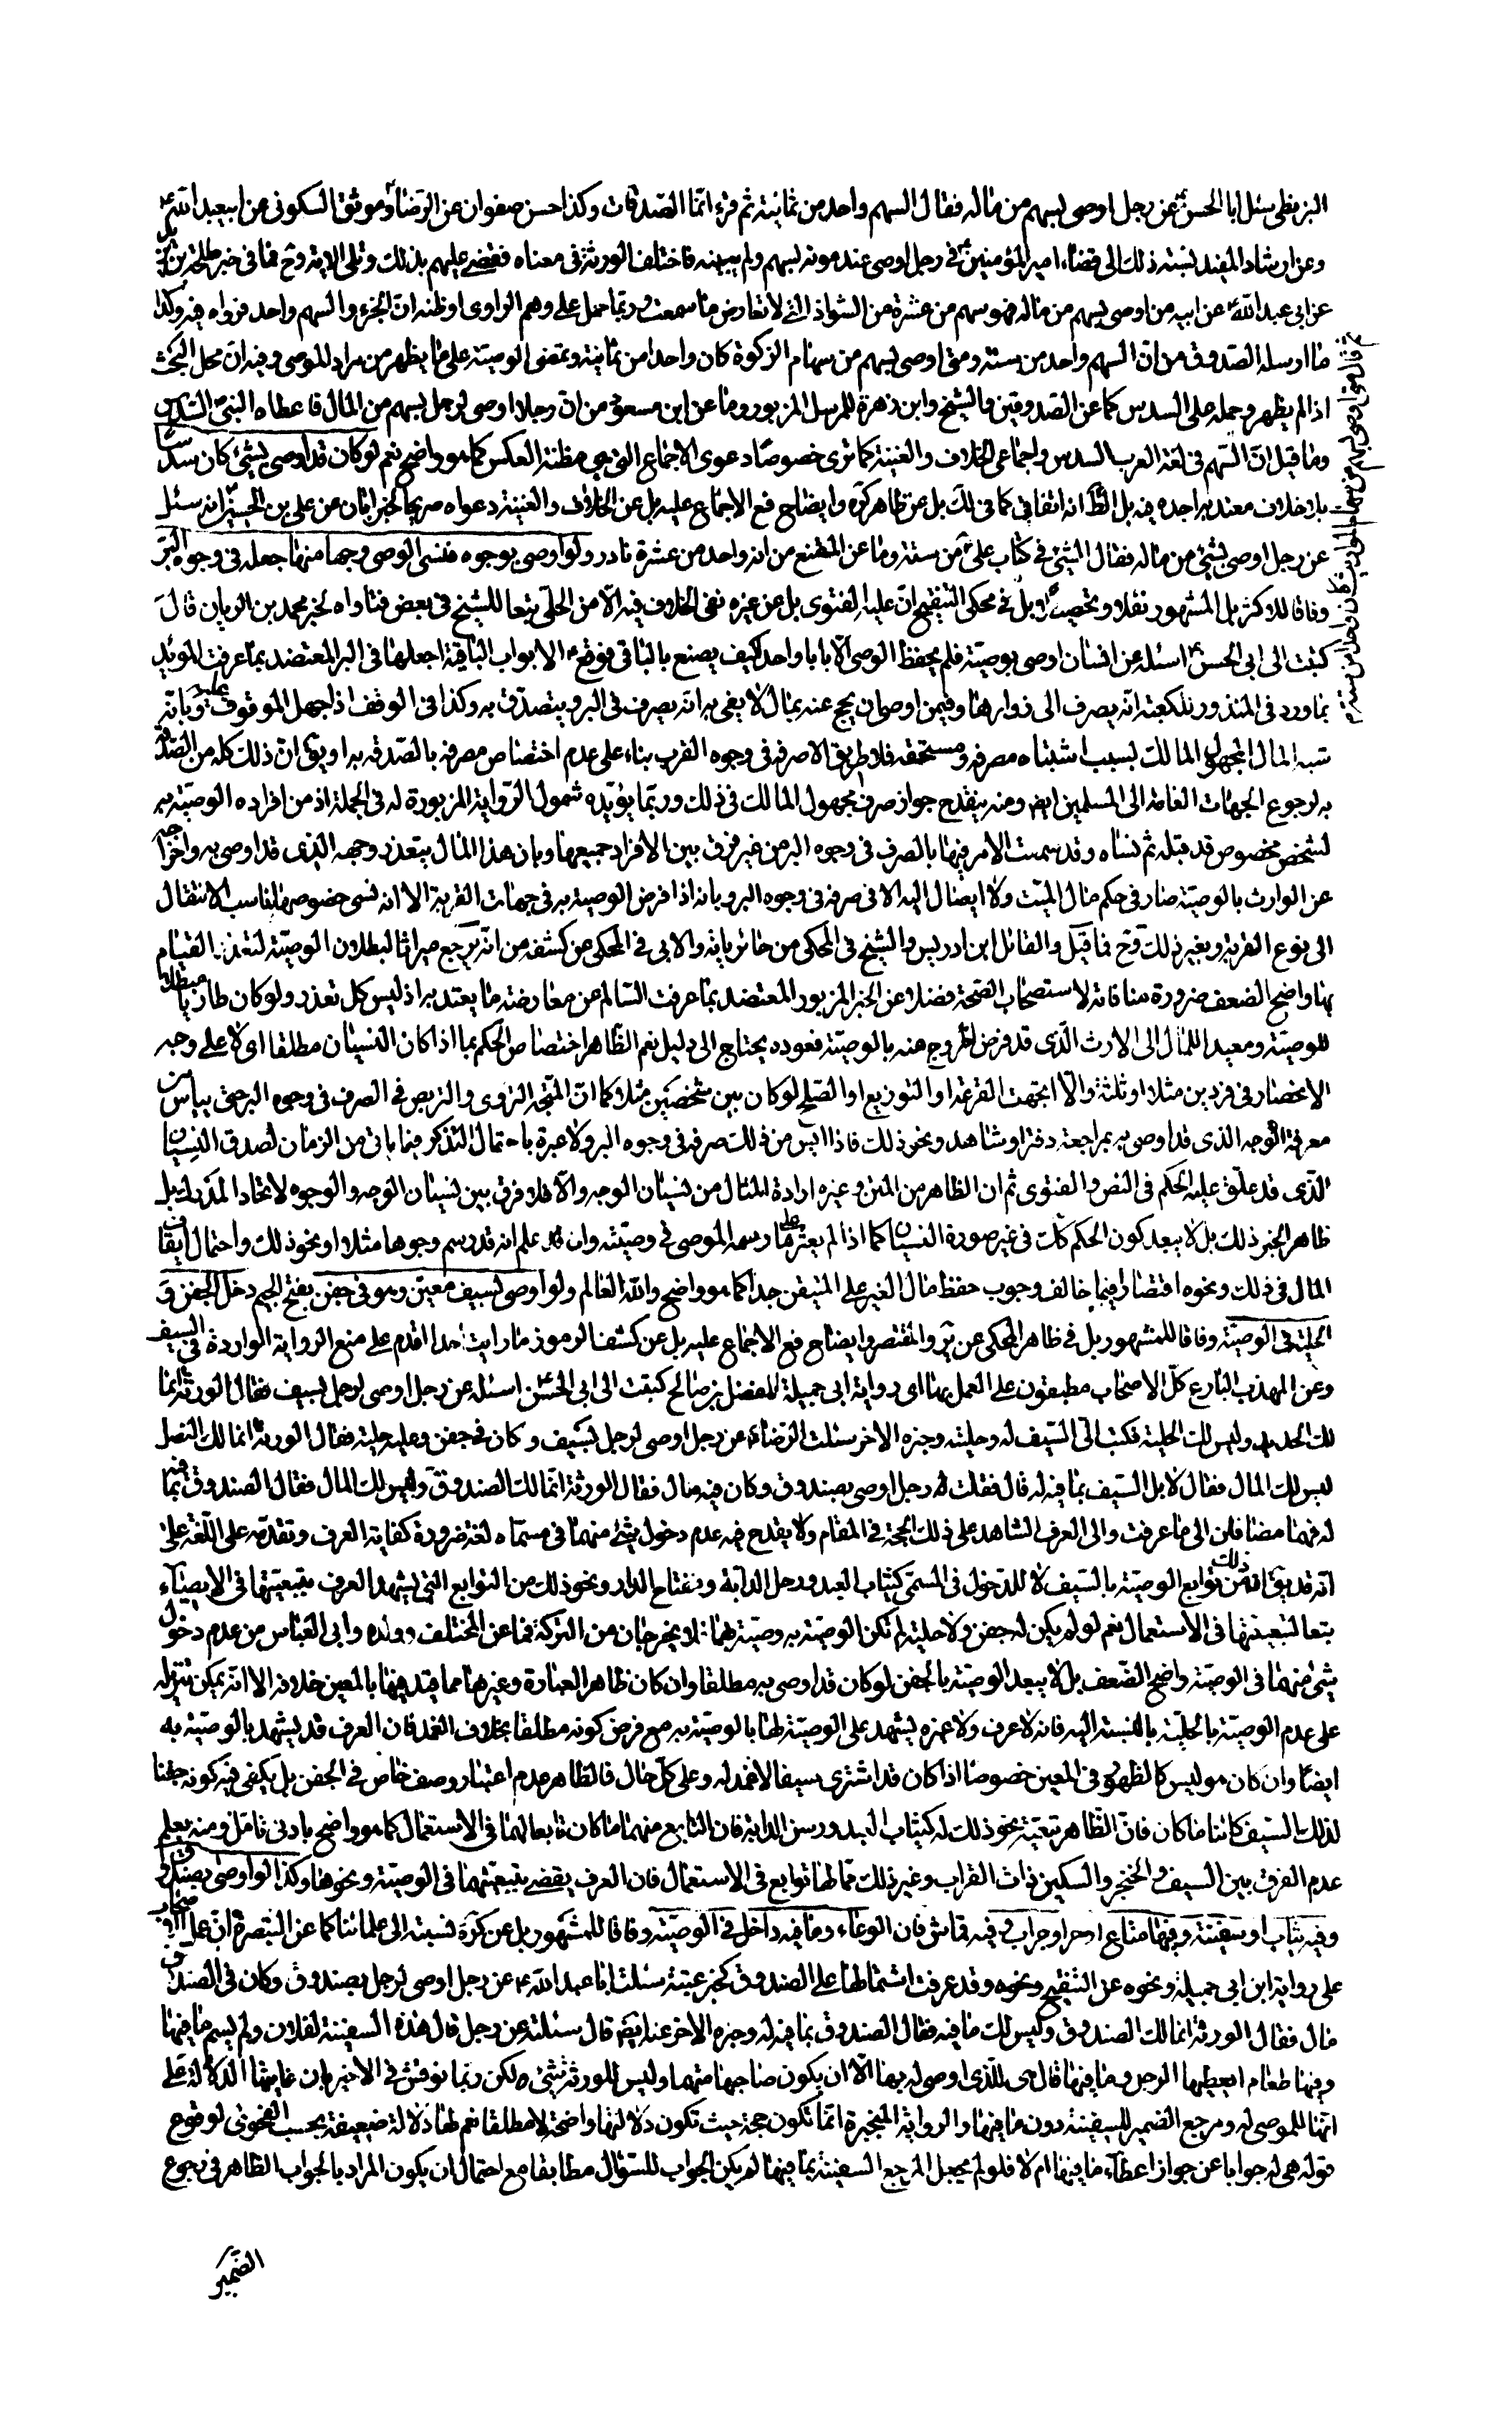 البزنطى سئل ابا الحسن ع عن رجل اوصى بسهم من ماله فقال السهم واحد من ثمانية ثم قرء انّما الصّدقات وكذا حسن صفوان عن الرّضا ع وموثق السكونى عن ابيعبد الله ع
وعن ارشاد المفيد نسبته ذلك الى قضاء امير المؤمنين ع فى رجل اوصى عند موته بسهم ولم يبينه فاختلف الورثة فى معناه فقضى عليهم بذلك وتلى الاية وح فما فى خبر طلحة بن زيد
عن ابى عبد الله ع عن ابيه من اوصى بسهم من ماله فهو سهم من عشرة من الشواذ التى لا تعارض ما سمعت وربّما حمل على وهم الراوى او ظنه انّ الجزء والسهم واحد فرواه فيه وكذا
ما ارسله الصّدوق من انّ السهم واحد من ستة ومتى اوصى بسهم من سهام الزكوة كان واحدا من ثمانية وتمضى الوصيّة على ما يظهر من مراد الموصى وفيه ان محل البحث
اذا لم يظهر وحمله على السدس كما عن الصّدوقين والشيخ وابن زهرة للمرسل المزبور وما عن ابن مسعود من انّ رجلا اوصى لرجل بسهم من المال فاعطاه النبىّ السّدس
وما قيل انّ السّهم فى لغة العرب السدس واجماعى الخلاف والغنية كما ترى خصوصا دعوى الاجماع التى هى مظنة العكس كما هو واضح نعم لو كان قد اوصى بشئ كان سدسًا
بلا خلاف معتد به اجده فيه بل الظّ انه اتفاقى كما فى لك بل عن ظاهر كره وايضاح فع الاجماع عليه بل عن الخلاف والغنية دعواه صريحا لخبر ابان عن على بن الحسين ع انه سئل
عن رجل اوصى بشئ من ماله فقال الشئ فى كتاب على ع من ستة وما عن المقنع من انه واحد من عشرة نادر ولو اوصى بوجوه فنسى الوصى وجها منها جعله فى وجوه البّر
وفاقا للاكثر بل المشهور نقلا وتحصيلا بل فى محكى التنقيح انّ عليه الفتوى بل عن غيره نفى الخلاف فيه الّا من الحلّى تبعا للشيخ فى بعض فتاواه لخبر محمد بن الريان قال
كتبت الى ابى الحسن ع اسئله عن انسان اوصى بوصيّة فلم يحفظ الوصى الّا بابا واحد كيف يصنع بالباقى فوقع ع الابواب الباقية اجعلها فى البر المعتضد بما عرفت المؤيد
بما ورد فى المنذور للكعبة انّه يصرف الى زوارها وفيمن اوصى ان يحج عنه بمال لا يفى به انّه يصرف فى البر ويتصدّق به وكذا فى الوقف اذا جهل الموقوف عليه وبانّه
شبه المال المجهول المالك بسبب اشتباه مصرفه ومستحقه فلا طريق الا صرفه فى وجوه القرب بناء على عدم اختصاص مصرفه بالصّدقة به او يق انّ ذلك كله من الصّدقة
به لرجوع الجهات العامة الى المسلمين ايض ومنه ينقدح جواز صرف مجهول المالك فى ذلك وربّما يؤيّده شمول الرّواية المزبورة له فى الجملة اذ من افراده الوصيّة به
لشخص مخصوص قد قبله ثم نساه وقد سمعت الامر فيها بالصرف فى وجوه البر من غير فرق بين الافراد جميعها وبان هذا المال يتعذر وجهه الذى قد اوصى به واخراجه
عن الوارث بالوصيّة صار فى حكم مال الميّت ولا ايصال اليه الا فى صرفه فى وجوه البر وبانه اذا فرض الوصية به فى جهات القربة الا انه نسى خصوصها ناسب الانتقال
الى نوع القربة وبغير ذلك وح فما قيل والقائل ابن ادريس والشيخ فى المحكى من حائرياته والابى فى المحكى عن كشفه من انّه يرجع ميراثا لبطلان الوصيّة لتعذر القيام
بها واضح الضعف ضرورة منافاته لاستصحاب الصّحة فضلا عن الخبر المزبور المعتضد بما عرفت السّالم عن معارضة ما يعتد به اذ ليس كل تعذر ولو كان طاريا مبطلا
للوصيّة ومعيدا للمال الى الارث الّذى قد فرض الخروج منه بالوصيّة فعوده يحتاج الى دليل نعم الظّاهر اختصاص الحكم بما اذا كان النسيان مطلقا اى لا على وجه
الانحصار فى فردين مثلا او ثلثة والّا اتجهت القرعة او التوزيع او الصّلح لو كان بين شخصين مثلا كما انّ المتّجه التروى والتربص فى الصرف فى وجوه البر حتى يياس من
معرفة الوجه الذى قد اوصى به بمراجعة دفتر او شاهد ونحو ذلك فاذا ايس من ذلك صرفه فى وجوه البر ولا عبرة باحتمال التذكر فيما ياتى من الزمان لصدق النسيان
الّذى قد علّق عليه الحكم فى النص والفتوى ثم ان الظاهر من المتن وغيره ارادة المثال من نسيان الوجه والّا فلا فرق بين نسيان الوجه والوجوه لاتحاد المدرك بل
ظاهر الخبر ذلك بل لا يبعد كون الحكم كك فى غير صورة النسيان كما اذا لم يعثر على ما رسمه الموصى فى وصيّته وان علم انه قد رسم وجوها مثلا او نحو ذلك واحتمال ايقاف
المال فى ذلك ونحوه اقتصارا فيما خالف وجوب حفظ مال الغير على المتيقن جدا كما هو واضح والله العالم ولو اوصى بسيف معيّن وهو فى جفن بفتح الجيم دخل الجفن وَ
الحلية فى الوصيّة وفاقا للمشهور بل فى ظاهر المحكى عن ير والمقتصر وايضاح فع الاجماع عليه بل عن كشف الرموز ما رايت احدا اقدم على منع الرواية الواردة فى السيف
وعن المهذب البارع كلّ الاصحاب مطبقون على العمل بها اى رواية ابى جميلة المفضل بن صالح كتبت الى ابى الحسن ع اسئله عن رجل اوصى لرجل بسيف فقال الورثة انما
لك الحديد وليس لك الحلية فكتب الىّ السّيف له وحليته وخبره الاخر سئلت الرّضا ع عن رجل اوصى لرجل بسيف وكان فى جفن وعليه حلية فقال الورثة انما لك النصل
ليس لك المال فقال لا بل السّيف بما فيه له قال فقلت له رجل اوصى بصندوق وكان فيه مال فقال الورثة انّما لك الصندوق وليس لك المال فقال الصندوق بما فيه
له فيهما مضافا الى ما عرفت والى العرف الشاهد على ذلك الحجة فى المقام ولا يقدح فيه عدم دخول شئ منهما فى مسماه لغة ضرورة كفاية العرف وتقدّمه على اللّغة على
انّه قد يق ان ذلك من توابع الوصيّة بالسّيف لا للدّخول فى المسمّى كثياب العبد ورحل الدابة ومفتاح الدار ونحو ذلك من التوابع التى يشهد العرف بتبعيّتها فى الايصاء
تبعا لتبعيتها فى الاستعمال نعم لو لم يكن له جفن ولا حلية لم تكن الوصيّة به وصيّة بهما فلا يخرجان من التركة فما عن المختلف وولده وابى العبّاس من عدم دخول
شئ منهما فى الوصيّة واضح الضّعف بل لا يبعد الوصيّة بالجفن لو كان قد اوصى به مطلقا وان كان ظاهر العبارة وغيرها مما قيد فيها بالمعين خلافه الا انّه يمكن تنزيله
على عدم الوصيّة بالحليّة بالنسبة اليه فانه لا عرف ولا غيره يشهد على الوصيّة لها بالوصيّة به مع فرض كونه مطلقا بخلاف الغمد فان العرف قد يشهد بالوصيّة به
ايضا وان كان هو ليس كالظهور فى المعين خصوصا اذا كان قد اشترى سيفا لا غمد له وعلى كلّ حال فالظاهر عدم اعتبار وصف خاص فى الجفن بل يكفى فيه كونه جفنا
لذلك السّيف كائنا ما كان فانّ الظّاهر تبعيّة نحو ذلك له كثياب العبد ورسن الدابة فان التابع منهما ما كان تابعا لهما فى الاستعمال كما هو واضح بادنى تامّل ومنه يعلم
عدم الفرق بين السيف والخنجر والسكين ذات القراب وغير ذلك ممّا لها توابع فى الاستعمال فان العرف يقضى بتبعيّتها فى الوصيّة ونحوها وكذا لو اوصى بصندوق
وفيه ثياب او سفينة وفيها متاع او جراب وفيه قماش فان الوعاء وما فيه داخل فى الوصيّة وفاقا للمشهور بل عن كره نسبته الى علمائنا كما عن التبصرة انّ عمل الاصحاب
على رواية ابن ابى جميلة ونحوه عن التنقيح ونحوه وقد عرفت اشتمالها على الصندوق كخبر عقبة سئلت ابا عبد الله ع عن رجل اوصى لرجل بصندوق وكان فى الصندوق
مال فقال الورثة انما لك الصندوق وليس لك ما فيه فقال الصندوق بما فيه له وخبره الاخر عنه ايض قال سئلته عن رجل قال هذه السفينة لفلان ولم يسم ما فيها
وفيها طعام ايعطيها الرجل وما فيها قال هى للّذى اوصى له بها الّا ان يكون صاحبها متهما وليس للورثة شئ ولكن ربّما نوقش فى الاخير بان غايتها الدلالة على
انّها للموصى له ومرجع الضمير للسفينة دون ما فيها والرواية المنجبرة انّما تكون حجة حيث تكون دلالتها واضحة لا مطلقا نعم لها دلالة ضعيفة بحسب الفحوى لوقوع
قوله هى له جوابا عن جواز اعطاء ما فيها ام لا فلو لم يجعل المرجع السفينة بما فيها لم يكن الجواب للسّؤال مطابقا مع احتمال ان يكون المراد بالجواب الظاهر فى رجوع
الضّمير